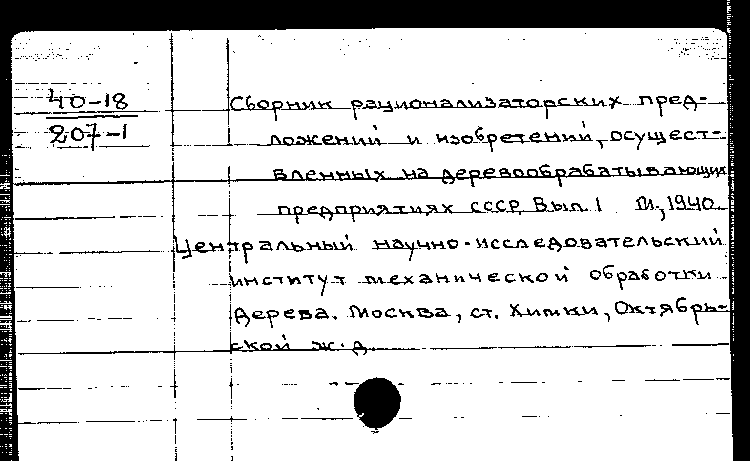 40-18
207-1
Сборник рационализаторских пред-
ложений и изобретений, осущест-
вленных на деревообрабатывающих
предприятиях СССР. Вып. 1 М., 1940.
Центральный научно-исследовательский
институт механической обработки
дерева. Москва, ст. Химки, Октябрь-
ской ж.д.